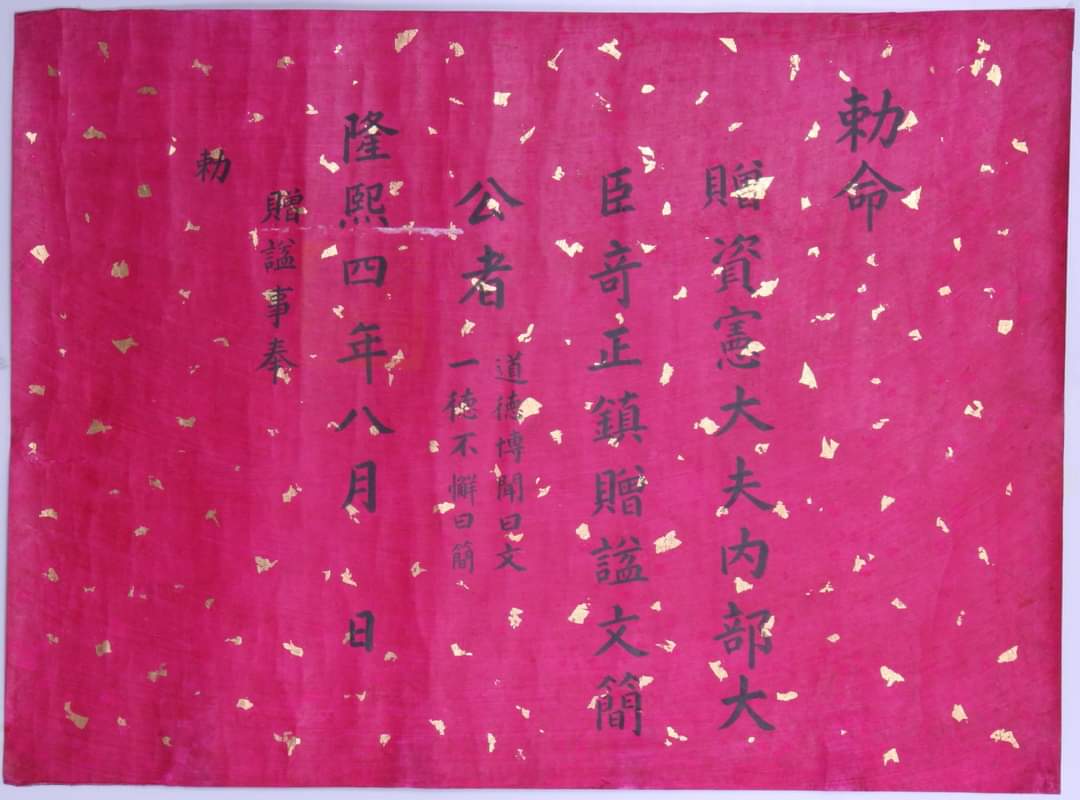 勅命
贈資憲大夫內部大
臣奇正鎮贈諡文簡
公者
道德博聞曰文
一德不懈曰簡
隆熙四年八月 日
贈諡事奉
勅